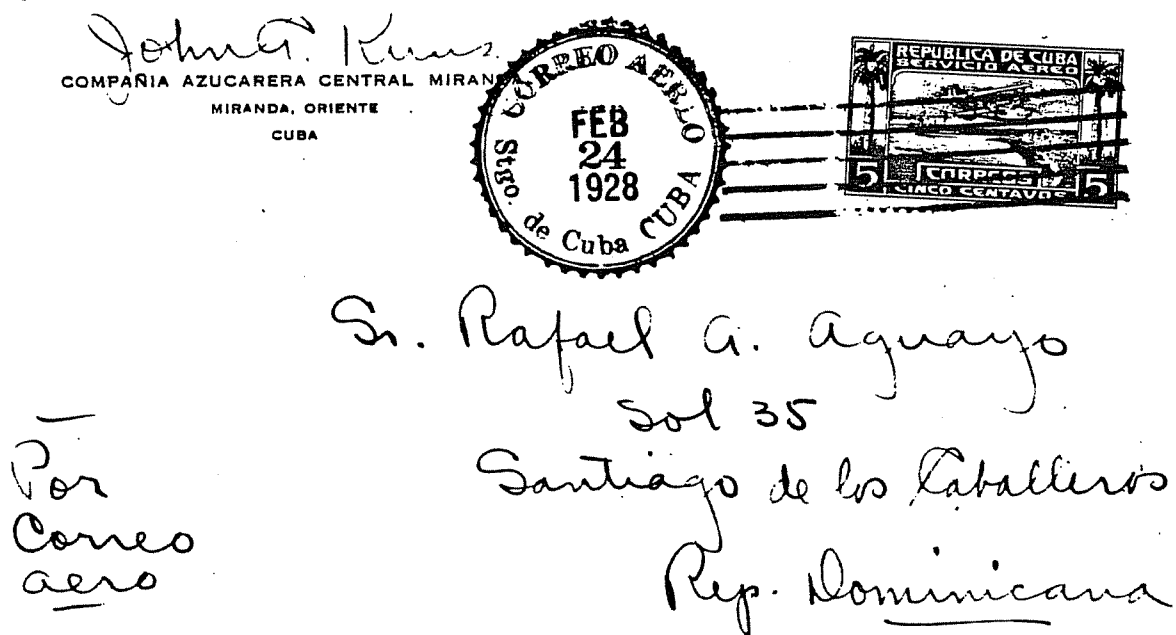 John T.
COMPAÑIA AZUCARERA CENTRAL MIRAN
MIRANDA, ORIENTE
CUBA
CORREO AEREO
FEB
24
1928
Stgo. de Cuba CUBA
REPUBLICA DE CUBA
SERVICIO AEREO
CORREOS
5 5
CINCO CENTAVOS
Sr. Rafael A. Aguayo
Sol 35
Santiago de los Caballeros
Rep. Dominicana
Por
Correo
aero